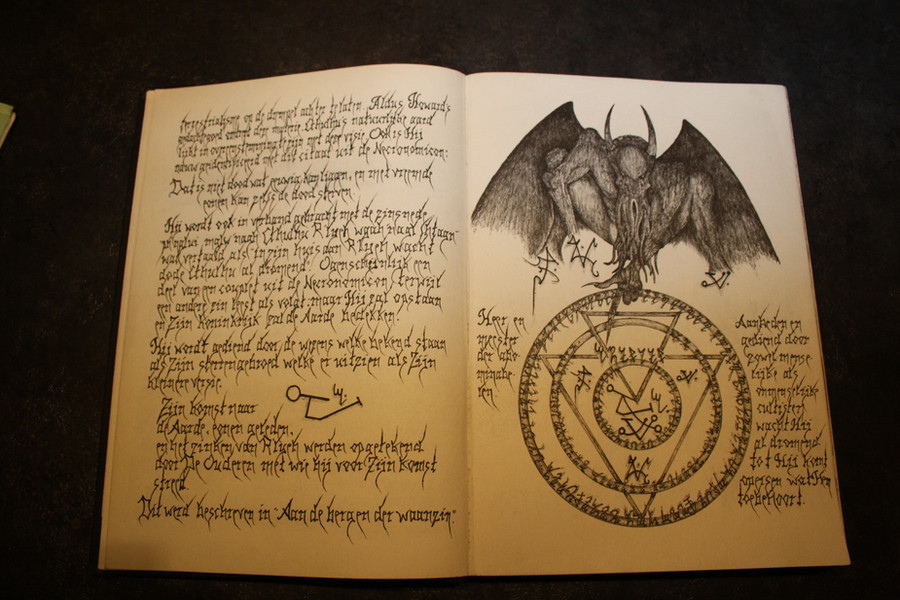 terrestrialisme op de drempel achter te laten. Aldus Howards
gedachtegoed omtrent deze materie. Cthulhu's natuurlijke aard
lijkt in overeenstemming te zijn met deze visie. Ook is Hij
nauw geïdentificeerd met dit citaat uit de Necronomicon:
Dat is niet dood wat eeuwig kan liggen, en met vreemde
eonen kan zelfs de dood sterven
Hij wordt ook in verband gebracht met de zinsnede
ph'nglui mglw'nafh Cthulhu R'lyeh
wat vertaald als in zijn huis aan R'lyeh wacht
dode Cthulhu al dromend. Ogenschijnlijk een
deel van een couplet uit de Necronomicon, terwijl
een andere zin leest als volgt: maar Hij zal opstaan
en Zijn koninkrijk zal de Aarde bedekken.
Hij wordt gediend door de wezens welke bekend staan
als Zijn sterrengebroed welke er uitzien als Zijn
kleinere versie.
Zijn komst naar
de Aarde, eonen geleden,
en het zinken van R'lyeh werden opgetekend
door De Ouderen met wie hij voor Zijn komst
streed.
Dit werd beschreven in "Aan de bergen der waanzin".
Heer en
meester
der abo-
minatie-
en.
Aanbeden en
gediend door
zowel mense-
lijke als
onmenselijke
cultisten
wacht Hij
al dromend
tot Hij komt
opeisen wat Hem
toebehoort.